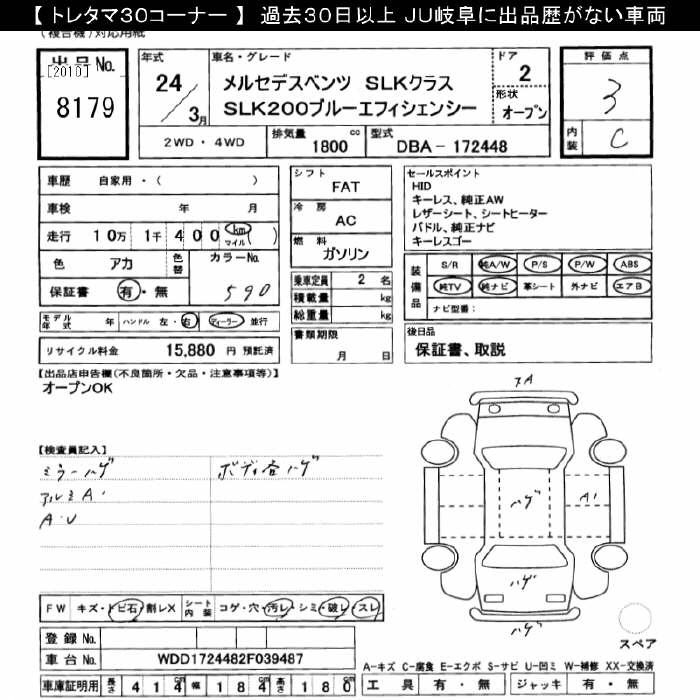 【 トレタマ30コーナー 】 過去30日以上 JU岐阜に出品歴がない車両
（複合機）対応用紙
出品No.
[2010]
8179
年式
24
3月
車名・グレード
メルセデスベンツ SLKクラス
SLK200ブルーエフィシェンシー
ドア
2
形状
オープン
評価点
3
内装
C
2WD・4WD
排気量
1800 cc
型式
DBA-172448
車歴 自家用・( )
車検 年 月
走行 10万 1千 400 (km マイル)
色 アカ 色替 カラーNo. 590
保証書 有・無
モデル年式 年 ハンドル 左・右 ディーラー・並行
リサイクル料金 15,880 円 預託済
シフト
FAT
冷房
AC
燃料
ガソリン
乗車定員 2 名
積載量 kg
総重量 kg
書類期限
月 日
セールスポイント
HID
キーレス、純正AW
レザーシート、シートヒーター
パドル、純正ナビ
キーレスゴー
装備品
S/R 純A/W P/S P/W ABS
純TV 純ナビ 革シート 外ナビ エアB
ナビ型番：
後日品
保証書、取説
【出品店申告欄（不良箇所・欠品・注意事項等）】
オープンOK
【検査員記入】
ミラーハゲ
ボディ各ハゲ
アルミA'
A・U
スA
ハゲ
A'
ハゲ
ハゲ
スペア
FW キズ・トビ石・割レX シート内装 コゲ・穴・汚レ・シミ・破レ・スレ
登録No.
車台No. WDD1724482F039487
車庫証明用 長さ 414cm 幅 184cm 高さ 130cm
A-キズ C-腐食 E-エクボ S-サビ U-凹ミ W-補修 XX-交換済
工具 有・無 ジャッキ 有・無